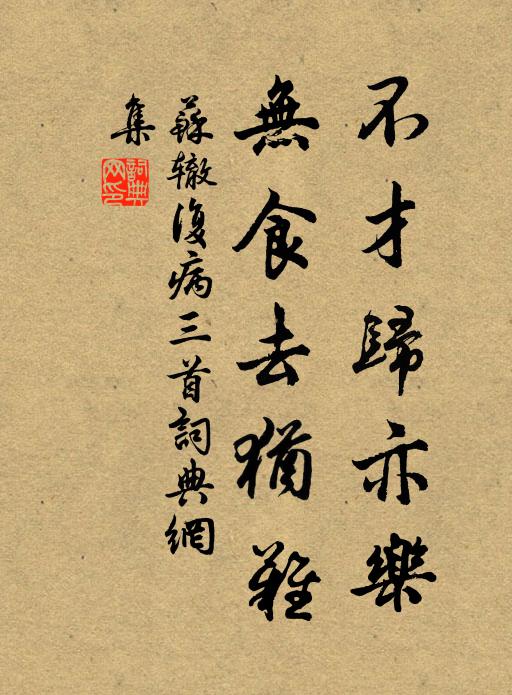 不才歸亦樂
無食去猶難
蘇辙復病三首詞典網
集
詞典
网印